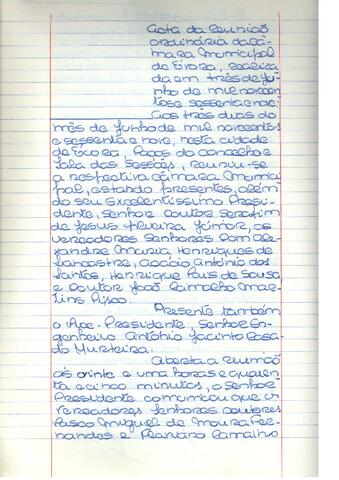 Acta da reunião
ordinária da Câ-
mara Municipal
de Évora, realiza
da em três de Ju-
nho de mil novecen
tos e sessenta e nove:
Aos três dias do
mês de Junho de mil novecentos
e sessenta e nove, nesta cidade
de Évora, Paços do Concelho e
Sala das Sessões, reuniu-se
a respectiva Câmara Munici
pal, estando presentes, além
do seu Excelentíssimo Presi-
dente, Senhor Doutor Serafim
de Jesus Silveira Júnior, os
vereadores Senhores Dom Ale-
xandre Maria Henriques de
Lancastre, Acácio António dos
Santos, Henrique Pais de Sousa
e Doutor João Ramalho Mar-
tins
Presente também
o Vice-Presidente, Senhor En-
genheiro António Jacinto Rosa-
do Murteira.
Aberta a reunião
às vinte e uma horas e quaren
ta e cinco minutos, o Senhor
Presidente comunicou que os
Vereadores Senhores Doutores
Vasco Miguel de Moura Fer-
nandes e Ramalho